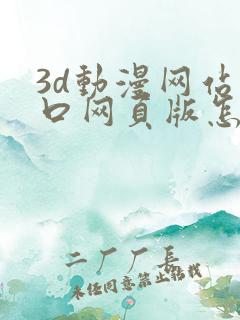 3d動漫网站
口网页版怎
二厂厂長
未经同意禁止转载